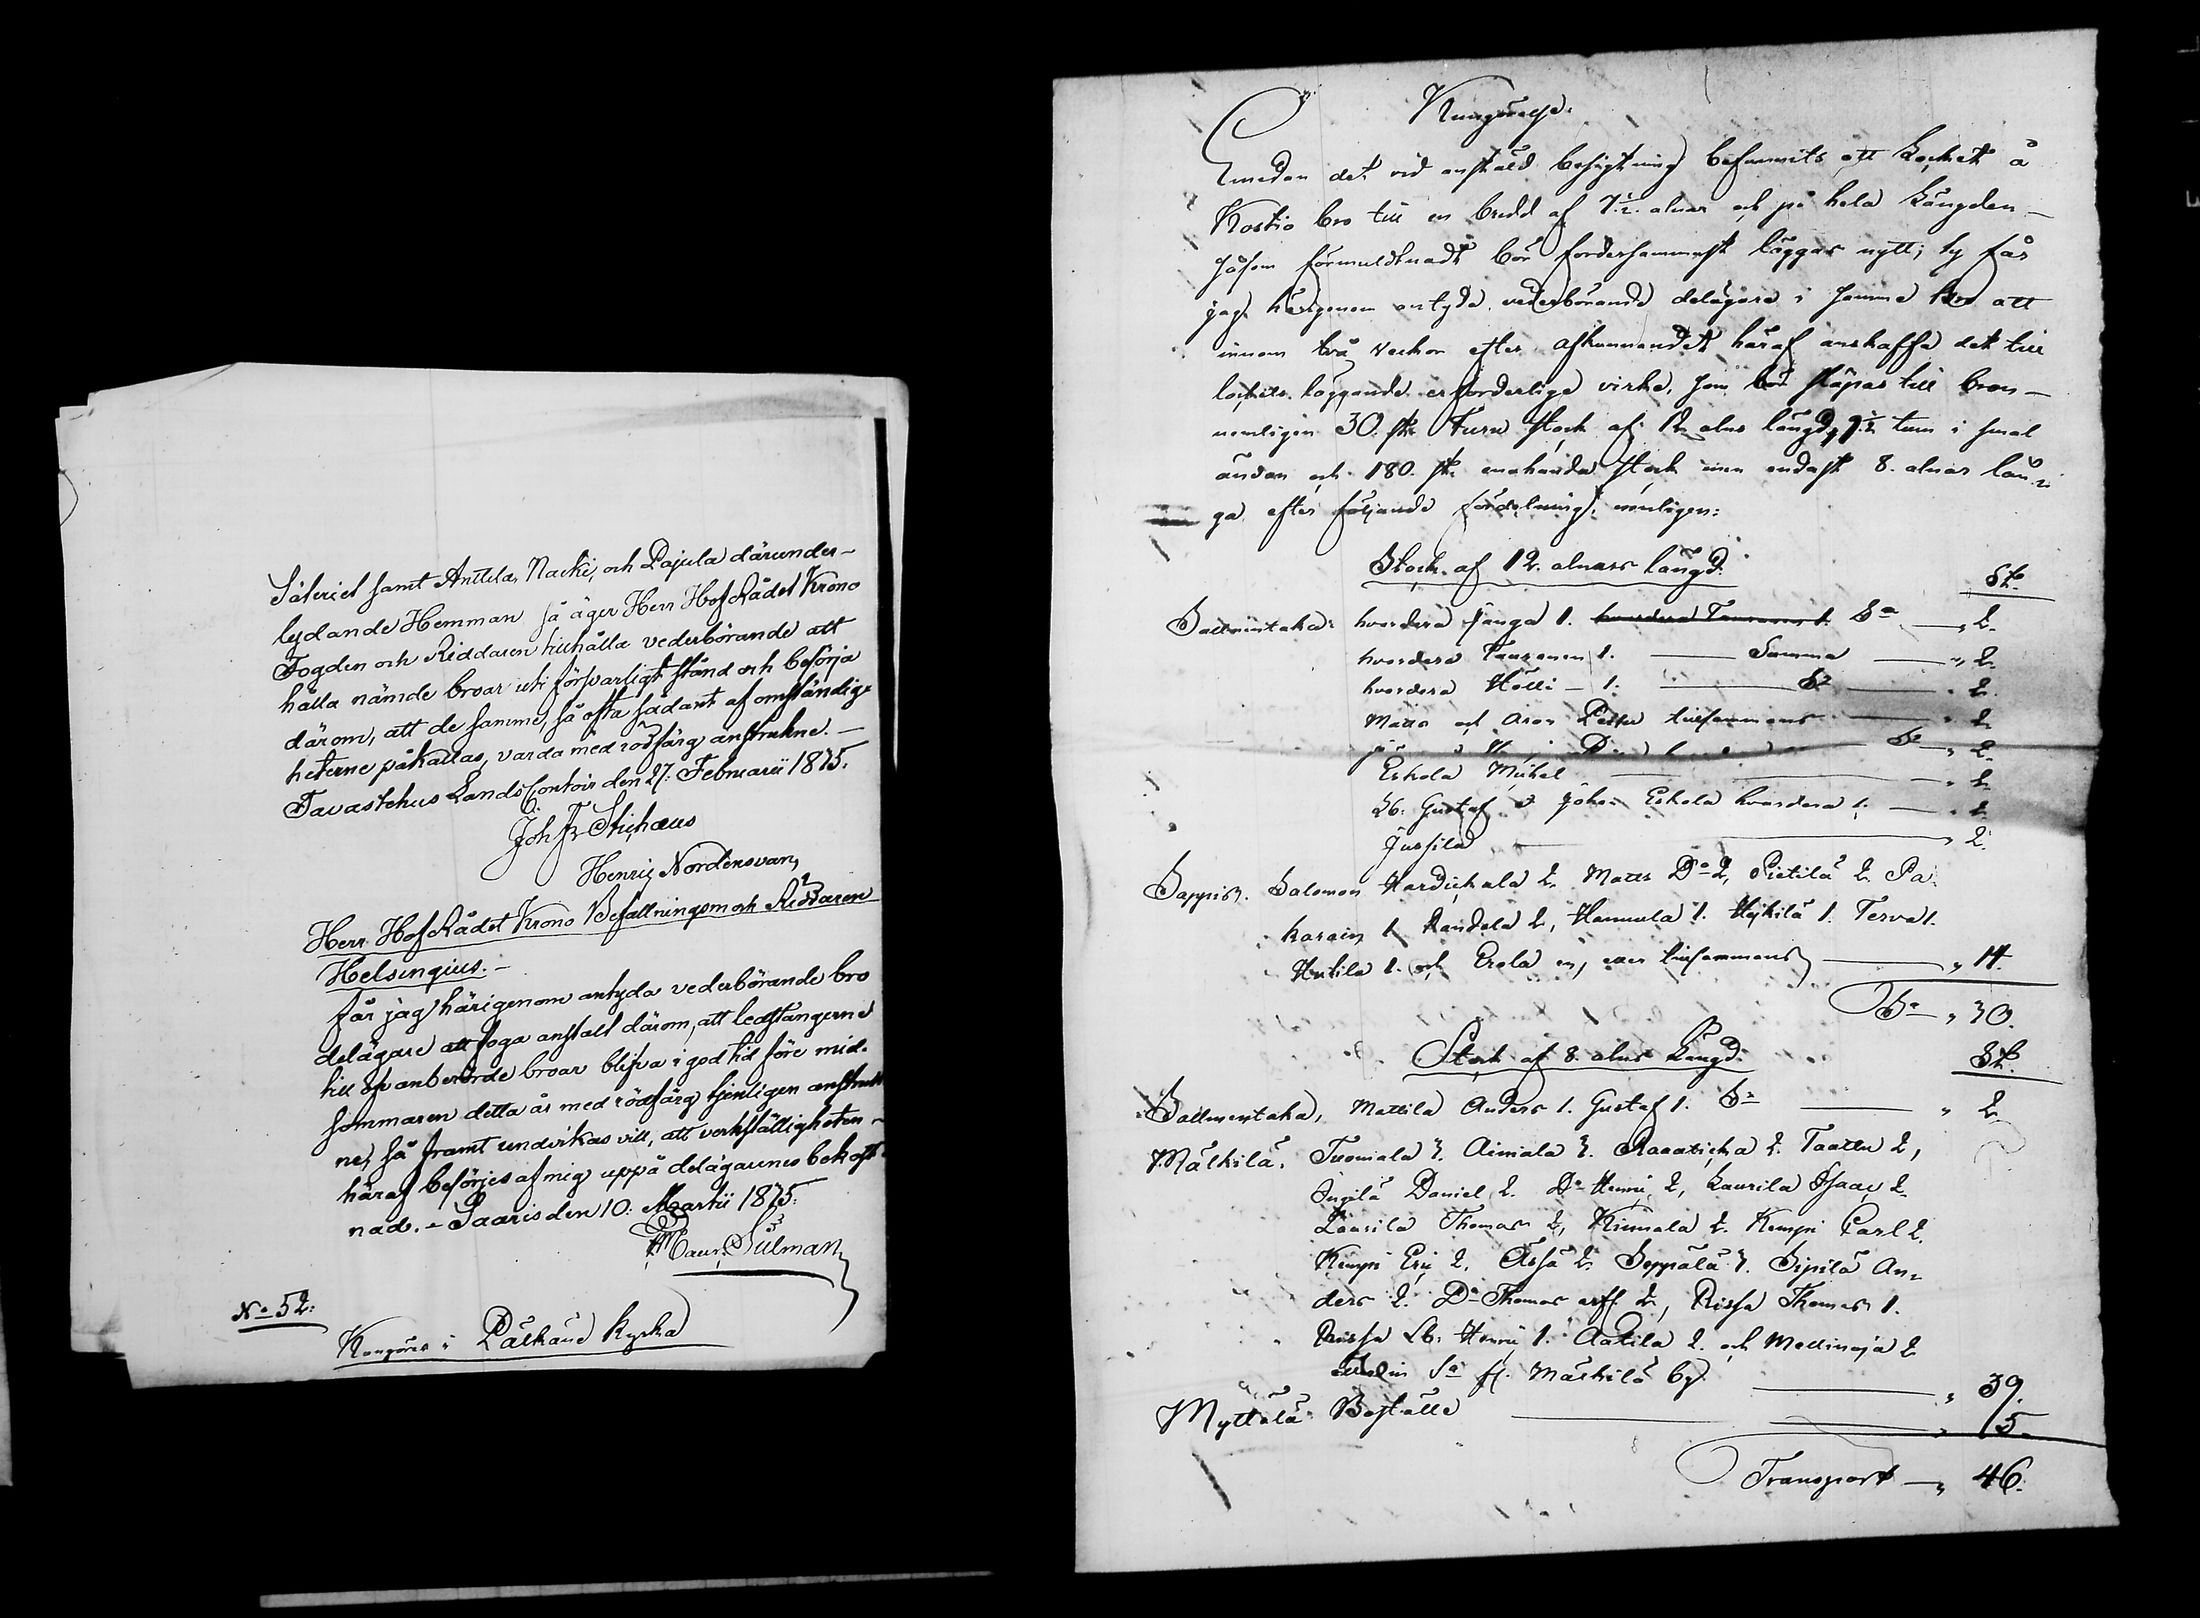 Säteriet samt Anttila, Naeki, och Pajula därunder-
lydande Hemman så äger Herr HofRådet Krono
Fogden och Riddaren tillhålla vederbörande att
hålla nämde broar uti försvarligt stånd och besörja
därom, att de samme, så ofta sådant af omständig-
heterne påkallas, varda med rödfärg anstrukne. —
Tavastehus Lands Contoir den 27. Februarii 1825.
Joh Fr Stichæus
Henric Nordensvan,
Herr HofRådet Krono Befallningsm och Riddaren
Helsingius. —
får jag härigenom antyda vederbörande bro
delägare att foga anstalt därom, att ledstångerne
till ofvanberörde broar blifva i god tid före mid-
sommaren detta år med rödfärg tjenligen anstruk-
ne, så framt undvikas vill, att verkställigheten
häraf besörjes af mig uppå delägarnes bekost-
nad. — Saaris den 10. Martii 1825.
Maur. Silman
No 52:
Kungöres i Pälkäne Kyrka
Kungörelse.
Emedan det vid anstäld besigtning befunnits att Locket å
Kostio bro till en bredd af 7 1/2 alnar och på hela Längden —
såsom förmultnadt bör fordersammast läggas nytt; ty får
jag härigenom antyda vederbörande delägare i samma Bro att
innom två veckor efter afkunnandet häraf anskaffa det till
lockets läggande erforderlige virke, som bör släpas till bron —
nemligen 30. st. Furu Stock af 12 alns längd, 9 1/2 tum i smal
ändan och 180. st. enahanda stock men endast 8. alnar län-
ga efter följande fördelning, nemligen:
Stock af 12. alnars längd. St.
Sallmentaka: hvardera Junga 1. hvardera Tauranen 1. Sa — 2.
hvardera Tauranen 1. — Summa — 2.
hvardera Hölli — 1. — Sa — 2.
Matts och Aron Petter tillsammans — 2.
Sa — 2.
Eskola Michel — 2.
Lb: Gustaf och Johan Eskola hvardera 1. — 2.
Jussila — 2.
Sappis. Salomon Hardickala 2. Matts Do 2, Pietilä 2. Pa-
karain 1. Randala 2, Hannula 1. Heikilä 1. Terva 1.
Hukila 1. och Erola en, eller tillsammans — 14.
Sa — 30.
Stock af 8. alns Längd. St.
Sallmentaka, Mattila Anders 1. Gustaf 1. Sa — 2.
Mälkilä. Tuomala 3. Aimala 3. Raaaticka 2. Taattu 2,
Sugilä Daniel 2. Do Henric 2, Laurila Isaac 2
Laurila Thomas 2, Kinnala 2. Kempi Carl 2.
Kempi Eric 2, Assä 2. Seppälä 3. Sipilä An-
ders 2. Do Thomas 2, Rissa Thomas 1.
Rissa Lb: Henric 1. Aakila 2. och Mellinoja 2
Sa Mälkilä by — 39.
Myttälä Boställe — 5.
Transport — 46.